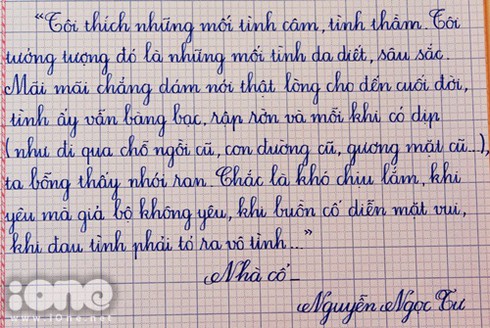 "Tôi thích những mối tình câm, tình thầm. Tôi
tưởng tượng đó là những mối tình da diết, sâu sắc.
Mãi mãi chẳng dám nói thật lòng cho đến cuối đời,
tình ấy vẫn bàng bạc, rập rờn và mỗi khi có dịp
(như đi qua chỗ ngồi cũ, con đường cũ, gương mặt cũ...),
ta bỗng thấy nhói ran. Chắc là khó chịu lắm, khi
yêu mà giả bộ không yêu, khi buồn cố diễn mặt vui,
khi đau tình phải tỏ ra vô tình..."
Nhà cổ_
Nguyễn Ngọc Tư
iOne
www.iOne.net